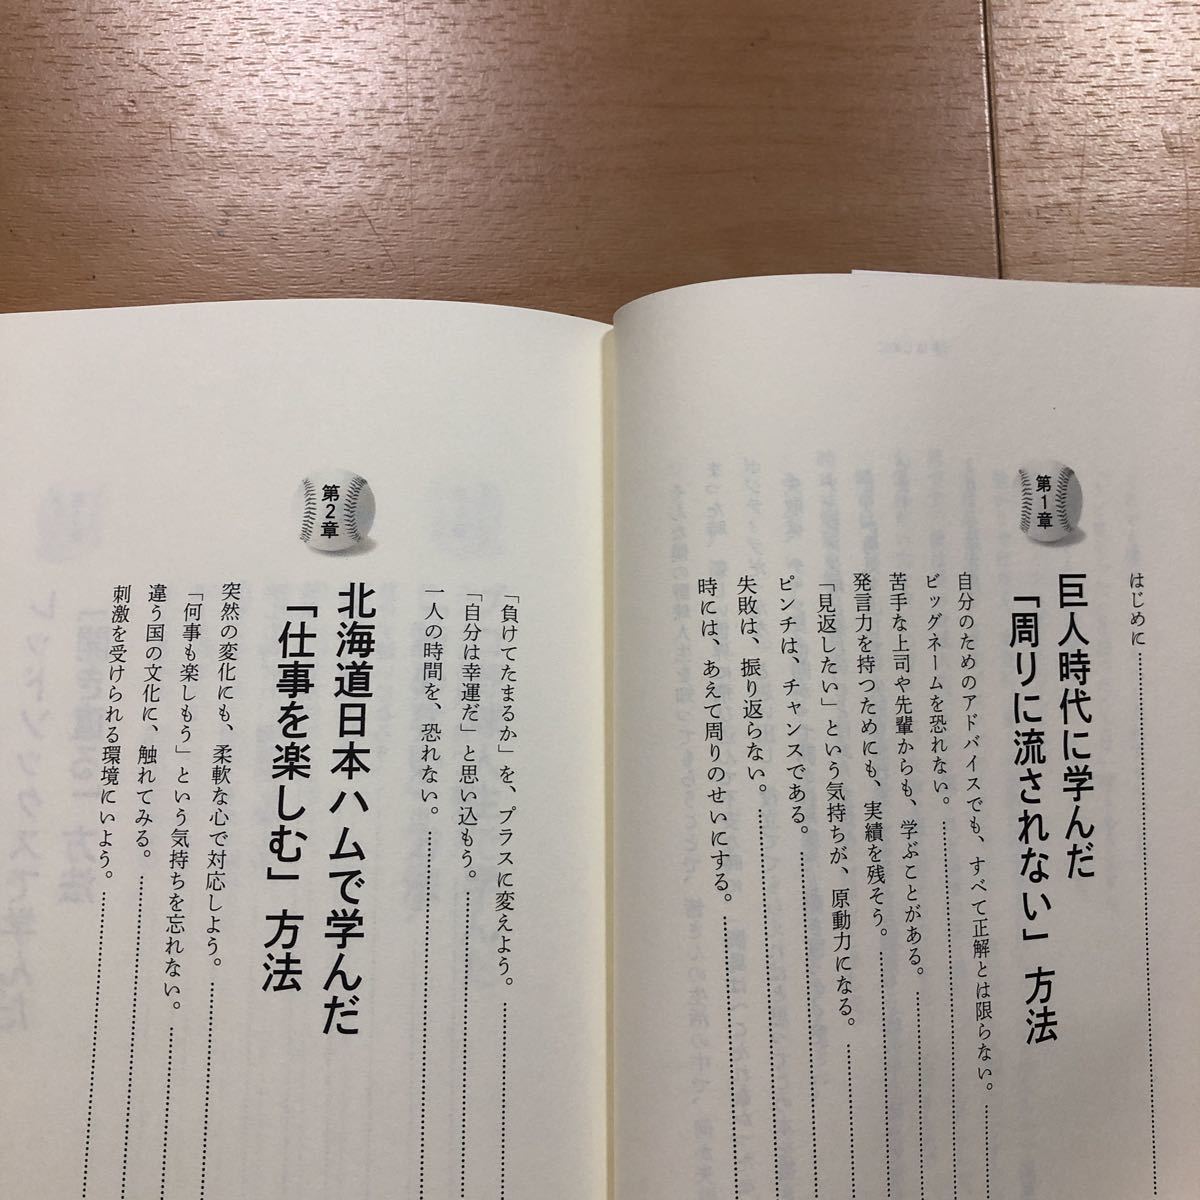 はじめに
第1章
巨人時代に学んだ
「周りに流されない」方法
自分のためのアドバイスでも、すべて正解とは限らない。
ビッグネームを恐れない。
苦手な上司や先輩からも、学ぶことがある。
発言力を持つためにも、実績を残そう。
「見返したい」という気持ちが、原動力になる。
ピンチは、チャンスである。
失敗は、振り返らない。
時には、あえて周りのせいにする。
「負けてたまるか」を、プラスに変えよう。
「自分は幸運だ」と思い込もう。
一人の時間を、恐れない。
第2章
北海道日本ハムで学んだ
「仕事を楽しむ」方法
突然の変化にも、柔軟な心で対応しよう。
「何事も楽しもう」という気持ちを忘れない。
違う国の文化に、触れてみる。
刺激を受けられる環境にいよう。